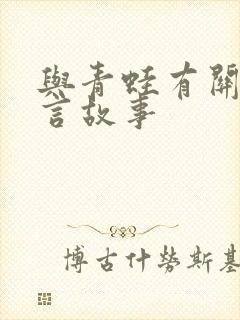 與青蛙有關
言故事
博古什勞斯基